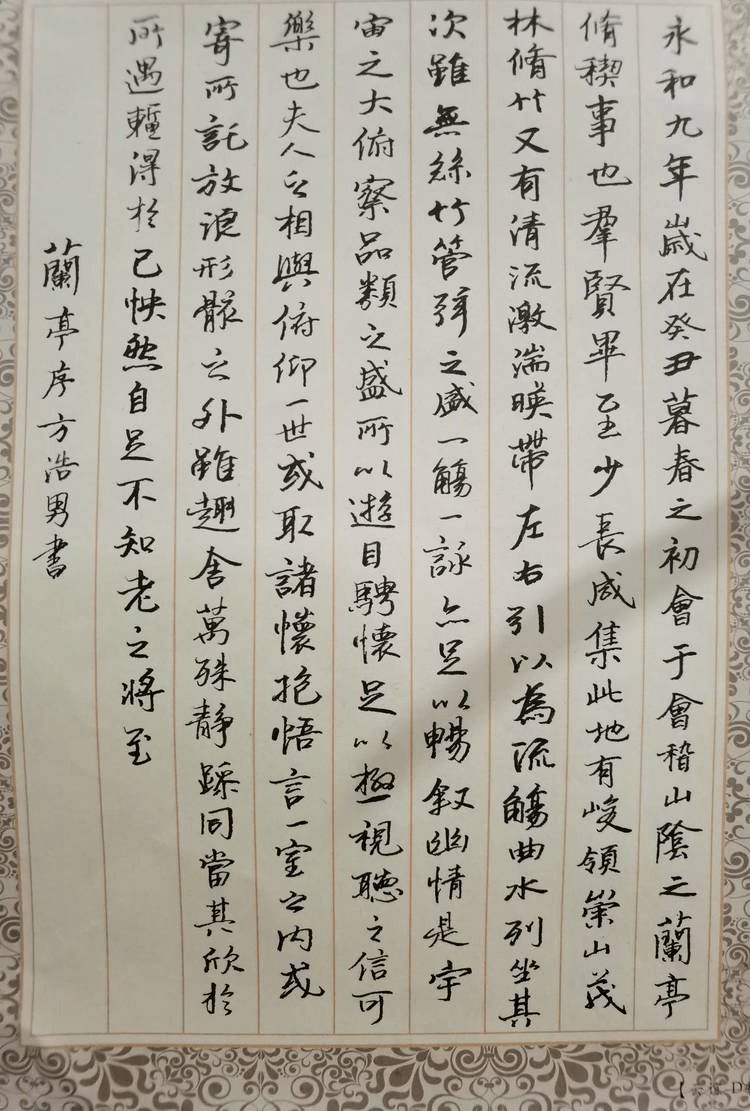 永和九年歲在癸丑暮春之初會于會稽山陰之蘭亭
脩稧事也羣賢畢至少長咸集此地有峻領崇山茂
林脩竹又有清流激湍暎帶左右引以為流觴曲水列坐其
次雖無絲竹管弦之盛一觴一詠亦足以暢叙幽情是宇
宙之大俯察品類之盛所以遊目騁懷足以極視聽之信可
樂也夫人之相與俯仰一世或取諸懷抱悟言一室之内或
寄所託放浪形骸之外雖趣舍萬殊静躁同當其欣於
所遇蹔得於己怏然自足不知老之將至
蘭亭序方浩男書